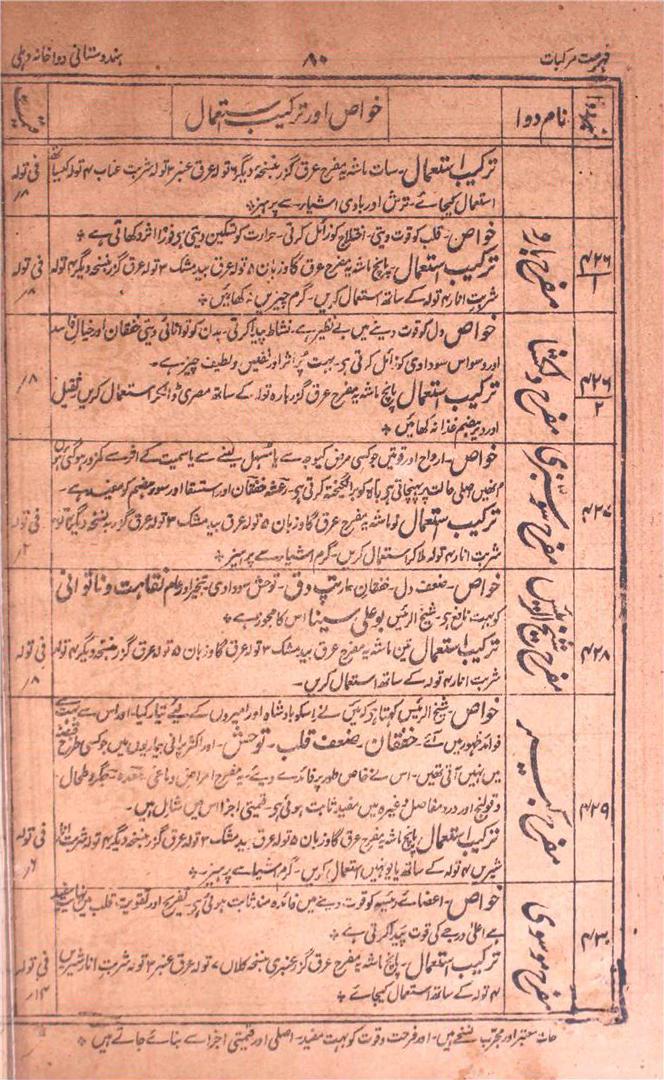 فہرست مرکبات ۸۰ ہندوستانی دواخانہ دہلی
نمبر دوا نام دوا خواص اور ترکیب استعمال قیمت
ترکیب استعمال۔ سات ماشہ یہ مفرح عرق گزر بنسخہ دیگر ۶ تولہ عرق عنبر ۲ تولہ شربت عناب ۴ تولہ کیساتھ فی تولہ
استعمال کیجائے۔ ترش اور بادی اشیاء سے پرہیز ۸/
۴۲۶/۱ مفرح بارد خواص۔ قلب کو قوت دیتی۔ اختلاج کو زائل کرتی۔ حرارت کو تسکین دیتی ہی فوراً اثر دکھاتی ہے
ترکیب استعمال۔ پانچ ماشہ یہ مفرح عرق گاوزبان ۵ تولہ عرق بید مشک ۲ تولہ عرق گزر بنسخہ دیگر ۴ تولہ فی تولہ
شربت انار ۴ تولہ کے ساتھ استعمال کریں۔ گرم چیزیں نہ کھائیں ۸/
۴۲۶/۲ مفرح دلکشا خواص دل کو قوت دینے میں بے نظیر ہے۔ نشاط پیدا کرتی۔ بدن کو توانائی دیتی خفقان اور خیال فاسد
اور وسواس سوداوی کو زائل کرتی ہی۔ بہت پر اثر اور نفیس و لطیف چیز ہے۔
ترکیب استعمال پانچ ماشہ یہ مفرح عرق گزر بارہ تولہ کے ساتھ مصری ڈالکر استعمال کریں ثقیل ۸/
اور دیر ہضم غذا نہ کھائیں
۴۲۷ مفرح سوسنبری خواص۔ ارواح اور قوتیں جو کسی مرض کیوجہ سے یا مسہل لینے سے یا سمیت کے اثر سے کمزور ہوگئی ہوں
انھیں اصلی حالت پر پہنچاتی ہی۔ باہ کو برانگیختہ کرتی ہی۔ رعشہ خفقان اور استسقا اور سوء ہضم کو مفید ہے۔
ترکیب استعمال نو ماشہ یہ مفرح عرق گاوزبان ۵ تولہ عرق بید مشک ۳ تولہ عرق گزر بنسخہ دیگر ۴ تولہ فی تولہ
شربت انار ۴ تولہ ملاکر استعمال کریں۔ گرم اشیاء سے پرہیز ۲/
۴۲۸ مفرح شیخ الرئیس خواص۔ ضعف دل۔ خفقان حار تپ دق۔ توحش سوداوی۔ تبخیر اور عام نقاہت و ناتوانی
کو بہت نافع ہی۔ شیخ الرئیس بوعلی سینا اس کا مجوز ہے
ترکیب استعمال تین ماشہ یہ مفرح عرق بید مشک ۲ تولہ عرق گاوزبان ۵ تولہ عرق گزر بنسخہ دیگر ۴ تولہ فی تولہ
شربت انار ۴ تولہ کے ساتھ استعمال کریں۔ ۸/
۴۲۹ مفرح کبیر خواص۔ شیخ الرئیس کہتا ہے کہ میں نے اسکو بادشاہ اور امیروں کے لیے تیار کیا۔ اور اس سے بہت سے
فوائد ظہور میں آئے۔ خفقان۔ ضعف قلب۔ توحش۔ اور اکثر پرانی بیماریوں میں جو کسی طرح قبضے
میں نہیں آتی تھیں۔ اس نے خاص طور پر فائدے دیے۔ یہ مفرح امراض دماغی معدہ جگر طحال
و قولنج اور درد مفاصل وغیرہ میں مفید ثابت ہوئی ہی۔ قیمتی اجزا اس میں شامل ہیں۔
ترکیب استعمال پانچ ماشہ یہ مفرح عرق گاوزبان ۵ تولہ عرق بید مشک ۲ تولہ عرق گزر بنسخہ دیگر ۴ تولہ شربت انار فی تولہ
شیریں ۴ تولہ کے ساتھ یا یونہیں استعمال کریں۔ گرم اشیا سے پرہیز۔ ۶/
۴۳۰ مفرح موسوی خواص۔ اعضائے رئیسہ کو قوت دینے میں فائدہ مند ثابت ہوئی ہی۔ تفریح اور تقویت قلب میں
ہے اعلیٰ درجے کی قوت پیدا کرتی ہے
ترکیب استعمال۔ پانچ ماشہ یہ مفرح عرق گزر عنبری بنسخہ کلاں ۷ تولہ عرق عنبر ۲ تولہ شربت انار شیریں فی تولہ
۴ تولہ کے ساتھ استعمال کیجائے ۱۴/
معتبر اور مجرب نسخے ہیں۔ اور فرحت و قوت کو بہت مفید۔ اصلی اور قیمتی اجزا سے بنائے جاتے ہیں